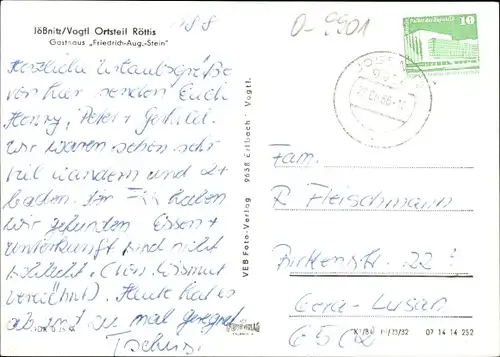 188
D-9901
Jößnitz/Vogtl Ortsteil Röttis
Gasthaus „Friedrich-Aug.-Stein"
10
Herzliche Urlaubsgrüße
von hier senden Euch
Henry, Peter + 
Wir waren schon sehr
viel wandern und 2x
baden. Im haben
wir gefunden Essen +
Unterkunft sind nicht
schlecht. (Von Wismut
verwöhnt). Heute hat es
ab und zu mal geregnet
Tschüss
VEB Foto-Verlag 9658 Erlbach Vogtl.
Fam.
R Fleischmann
Birkenstr. 22
Gera-Lusan
6502
07 14 14 252